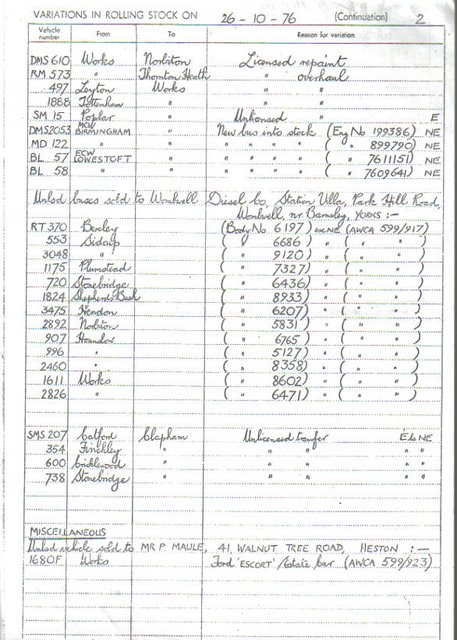 VARIATIONS IN ROLLING STOCK ON 26 - 10 - 76 (Continuation) 2
Vehicle number From To Reason for variation
DMS 610 Works Norbiton Licensed repaint
RM 573 " Thornton Heath " overhaul
497 Leyton Works " "
1888 Tottenham " " "
SM 15 Poplar " Unlicensed E
DMS2053 MCW BIRMINGHAM " New bus into stock (Eng No 199386) NE
MD 122 " " " ( " 899790) NE
BL 57 ECW LOWESTOFT " " ( " 7611151) NE
BL 58 " " " ( " 7609641) NE
Unlcd buses sold to Wombwell Diesel Co, Station Villa, Park Hill Road,
Wombwell, nr Barnsley, YORKS :-
RT 370 Bexley (Body No 6197) (AWCA 599/917)
553 Sidcup ( " 6686) " ( " " )
3048 " ( " 9120) " ( " " )
1175 Plumstead ( " 7327) " ( " " )
720 Stonebridge ( " 6436) " ( " " )
1824 Shepherds Bush ( " 8933) " ( " " )
3475 Hendon ( " 6207) " ( " " )
2892 Norbiton ( " 5831) " ( " " )
907 Hounslow ( " 6765) " ( " " )
996 " ( " 5127) " ( " " )
2460 " ( " 8358) " ( " " )
1611 Works ( " 8602) " ( " " )
2826 " ( " 6471) " ( " " )
SMS 207 Catford Clapham Unlicensed transfer E to NE
354 Finchley " " " " "
600 Cricklewood " " " " "
738 Stonebridge " " " " "
MISCELLANEOUS
Unlcd vehicle sold to MR P MAULE, 41, WALNUT TREE ROAD, HESTON :-
1680F Works Ford 'ESCORT' Estate Car (AWCA 599/923)